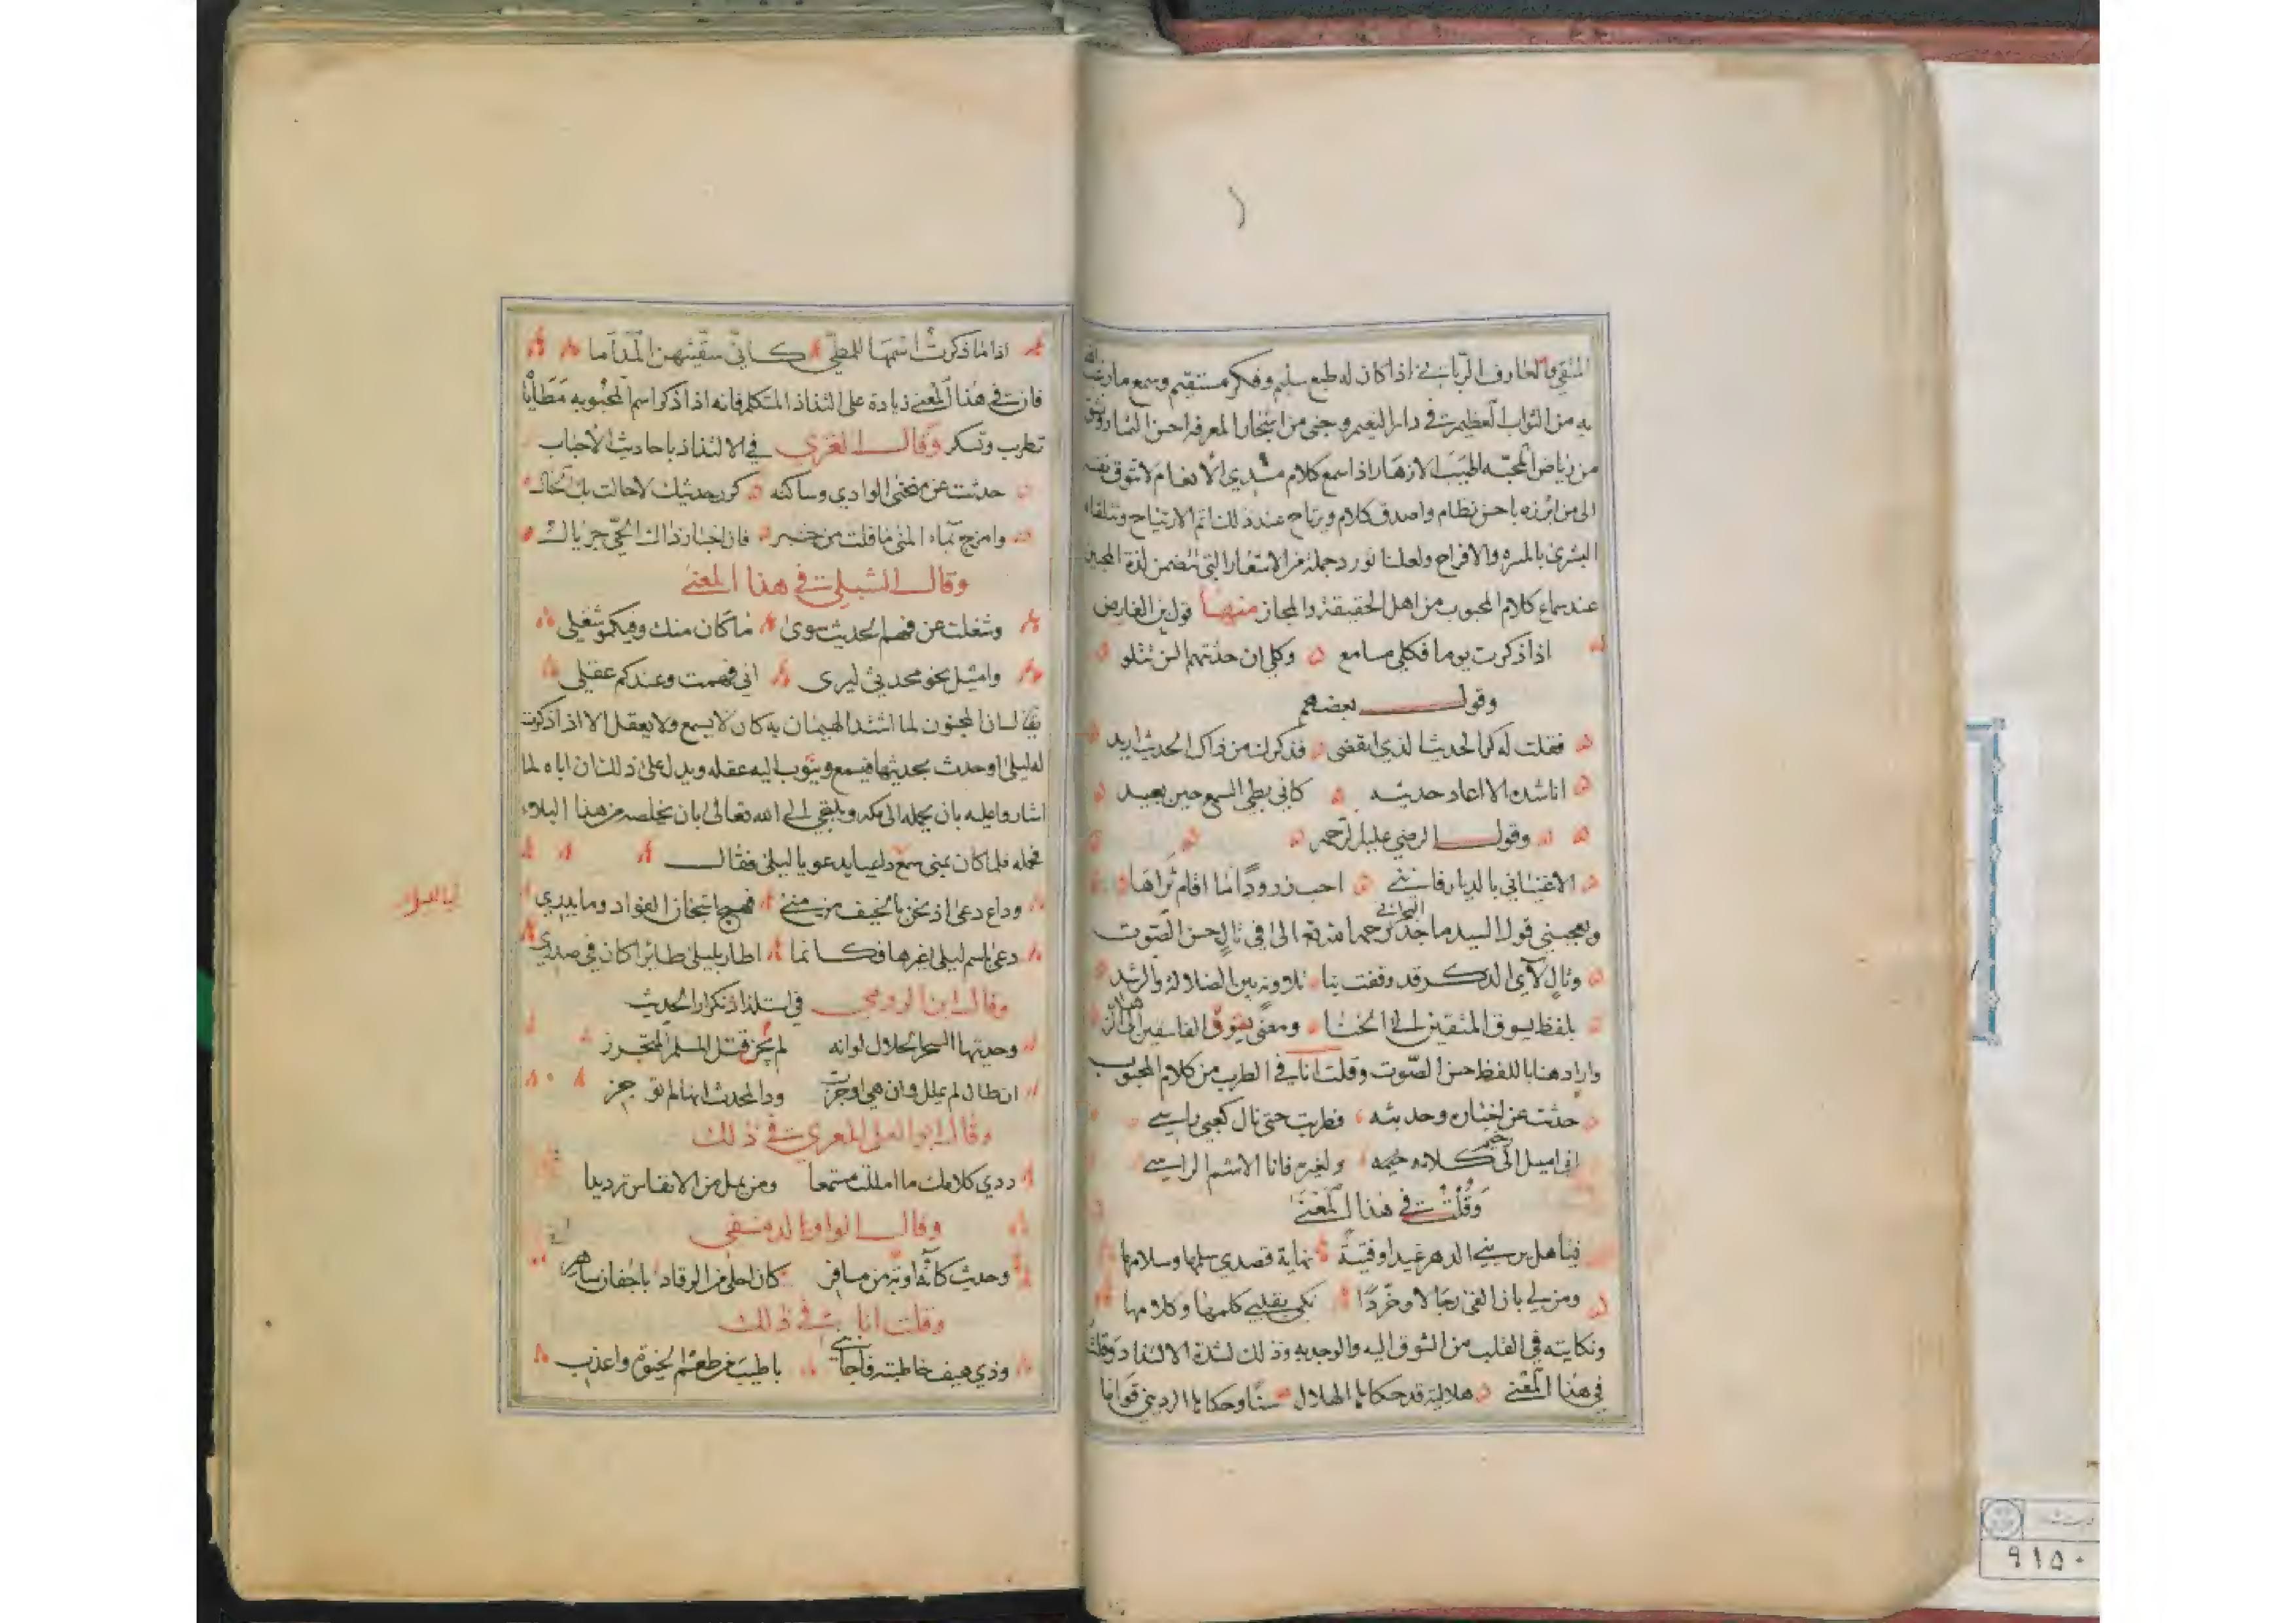 المتقي والعارف الرباني اذا كان له طبع سليم وفكر مستقيم وسمع ما رغب الله
به من الثواب العظيم في دار النعيم وجنى من اشجار المعرفة احسن الثمار
من رياض المحبة اطيب الازهار اذا سمع كلام مبدي الانعام لا
الى من ابرزه باحسن نظام واصدق كلام ويرتاح عند ذلك اتم الارتياح وتتلقاه
البشرى بالمسرة والافراح ولعلنا نورد جملة من الاشعار التي تتضمن لذة المحبين
عند سماع كلام المحبوب من اهل الحقيقة والمجاز منها قول بن الفارض
اذا ذكرت يوما فكلي مسامع وكلي ان حدثتهم السن تتلو
وقول بعضهم
فقلت له كر الحديث الذي انقضى فذكرك من ذاك الحديث اريد
اناشده الا اعاد حديثه كاني بطي السمع حين يعيد
وقول الرضي عليه الرحمه
الا غنياني بالديار فانني احب زرودا ما اقام ثراها
ويعجبني قول السيد ماجد البحراني رحمه الله تعالى في تال حسن الصوت
وتال لآي الذكر قد وقفت بنا تلاوته بين الضلالة والرشد
بلفظ يسوق المتقين الى الخنا ومعنى يشوق الفاسقين الى الزهد
واراد هنا باللفظ حسن الصوت وقلت انا في الطرب من كلام المحبوب
حدثت عن اخباره وحديثه فطربت حتى نال كعبي راسي
اني اميل الى كلامه رخيمه ولغيره فانا الاشم الراسي
وقلت في هذا المعنى
فيا هل يريني الدهر غيدا وفتية نهاية قصدي سلمها وسلامها
ومن لي بان القى رجالا وخردا بقلبي كلمها وكلامها
ونكايته في القلب من الشوق اليه والوجد به وذلك لشدة الالتذاذ وقلت
في هذا المعنى هلالية قد حكاها الهلال سنا وحكاها الرديني قواما
اذا ما ذكرت اسمها للمطي كاني سقيتهن المداما
فان في هذا المعنى زيادة على التذاذ المتكلم فانه اذا ذكر اسم المحبوبه مطايا
تطرب وتسكر وقال الغزي في الالتذاذ باحاديث الاحباب
حدثت عن منحنى الوادي وساكنه كرر حديثك لا حالت بك الحال
وامزج بماء المنى ما قلت من خبر فان اخبار ذاك الحي جريال
وقال الشبلي في هذا المعنى
وشغلت عن فهم الحديث سوى ما كان منك وفيكمو شغلي
واميل نحو محدثي ليرى اني فهمت وعندكم عقلي
يقال ان المجنون لما اشتد الهيمان به كان لا يسمع ولا يعقل الا اذا ذكرت
له ليلى او حدث بحديثها فيسمع ويثوب اليه عقله ويدل على ذلك ان اباه لما
اشاروا عليه بان يحمله الى مكه ويلتجي الى الله تعالى بان يخلصه من هذا البلاء
فحمله فلما كان بمنى سمع داعيا يدعو يا ليلى فقال
وداع دعى اذ نحن بالخيف من منى فهيج اشجان الفواد وما يدري
دعى باسم ليلى غيرها فكانما اطار بليلى طائرا كان في صدري
وقال ابن الرومي في استلذاذ تكرار الحديث
وحديثها السحر الحلال لو انه لم يجن قتل المسلم المتحرز
ان طال لم يملل وان هي اوجزت ود المحدث انها لم توجز
وقال ابو العلى المعري في ذلك
ردي كلامك ما امللت مستمعا ومن يمل من الانفاس ترديدا
وقال الواوا الدمشقي
وحديث كانه اوبة من مسافر كان احلى من الرقاد باجفان ساهر
وقلت انا في ذلك
وذي هيف خاطبته فاجابني باطيب من طعم الختوم واعذب
٩١٥٠